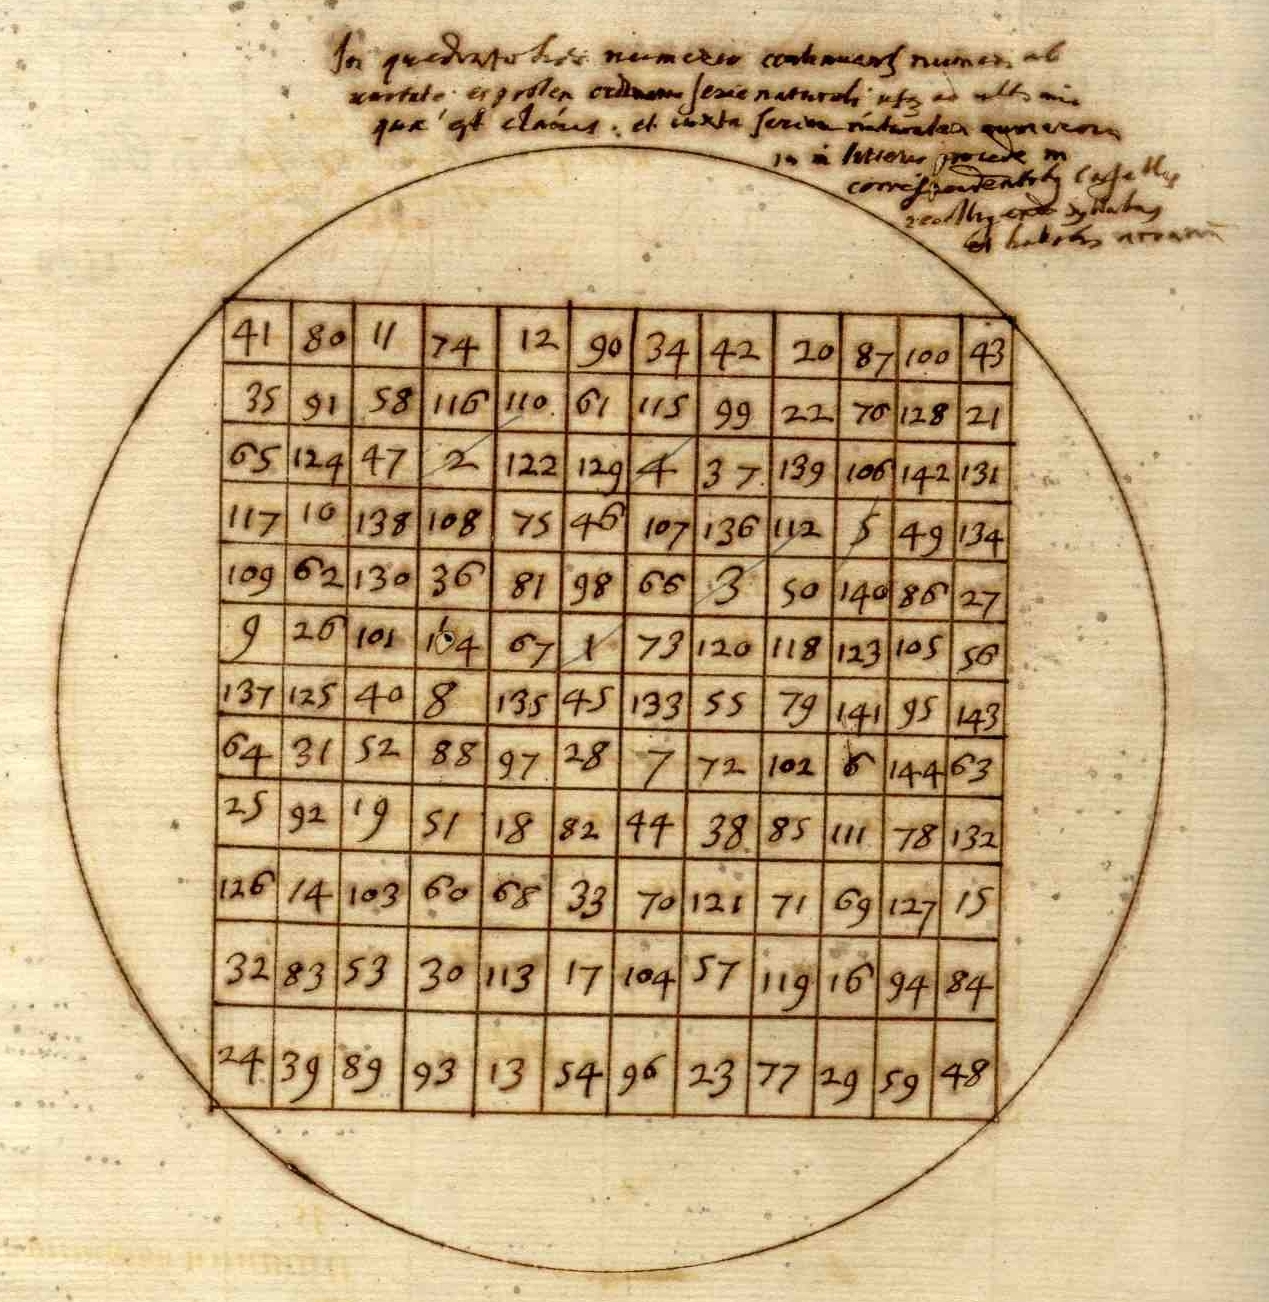 In quadrato hoc numero continuans numeri ab
ordinem serie naturali ad
quae est clavis. et iuxta seriem naturalem numerorum
in literis procede in
correspondentibus
41 80 11 74 12 90 34 42 20 87 100 43
35 91 58 116 110 61 115 99 22 76 128 21
65 124 47 2 122 129 4 37 139 106 142 131
117 10 138 108 75 46 107 136 112 5 49 134
109 62 130 36 81 98 66 3 50 140 86 27
9 26 101 67 1 73 120 118 123 105 56
137 125 40 8 135 45 133 55 79 141 95 143
64 31 52 88 97 28 7 72 102 6 144 63
25 92 19 51 18 82 44 38 85 111 78 132
126 14 103 60 68 33 70 121 71 69 127 15
32 83 53 30 113 17 104 57 119 16 94 84
24 39 89 93 13 54 96 23 77 29 59 48